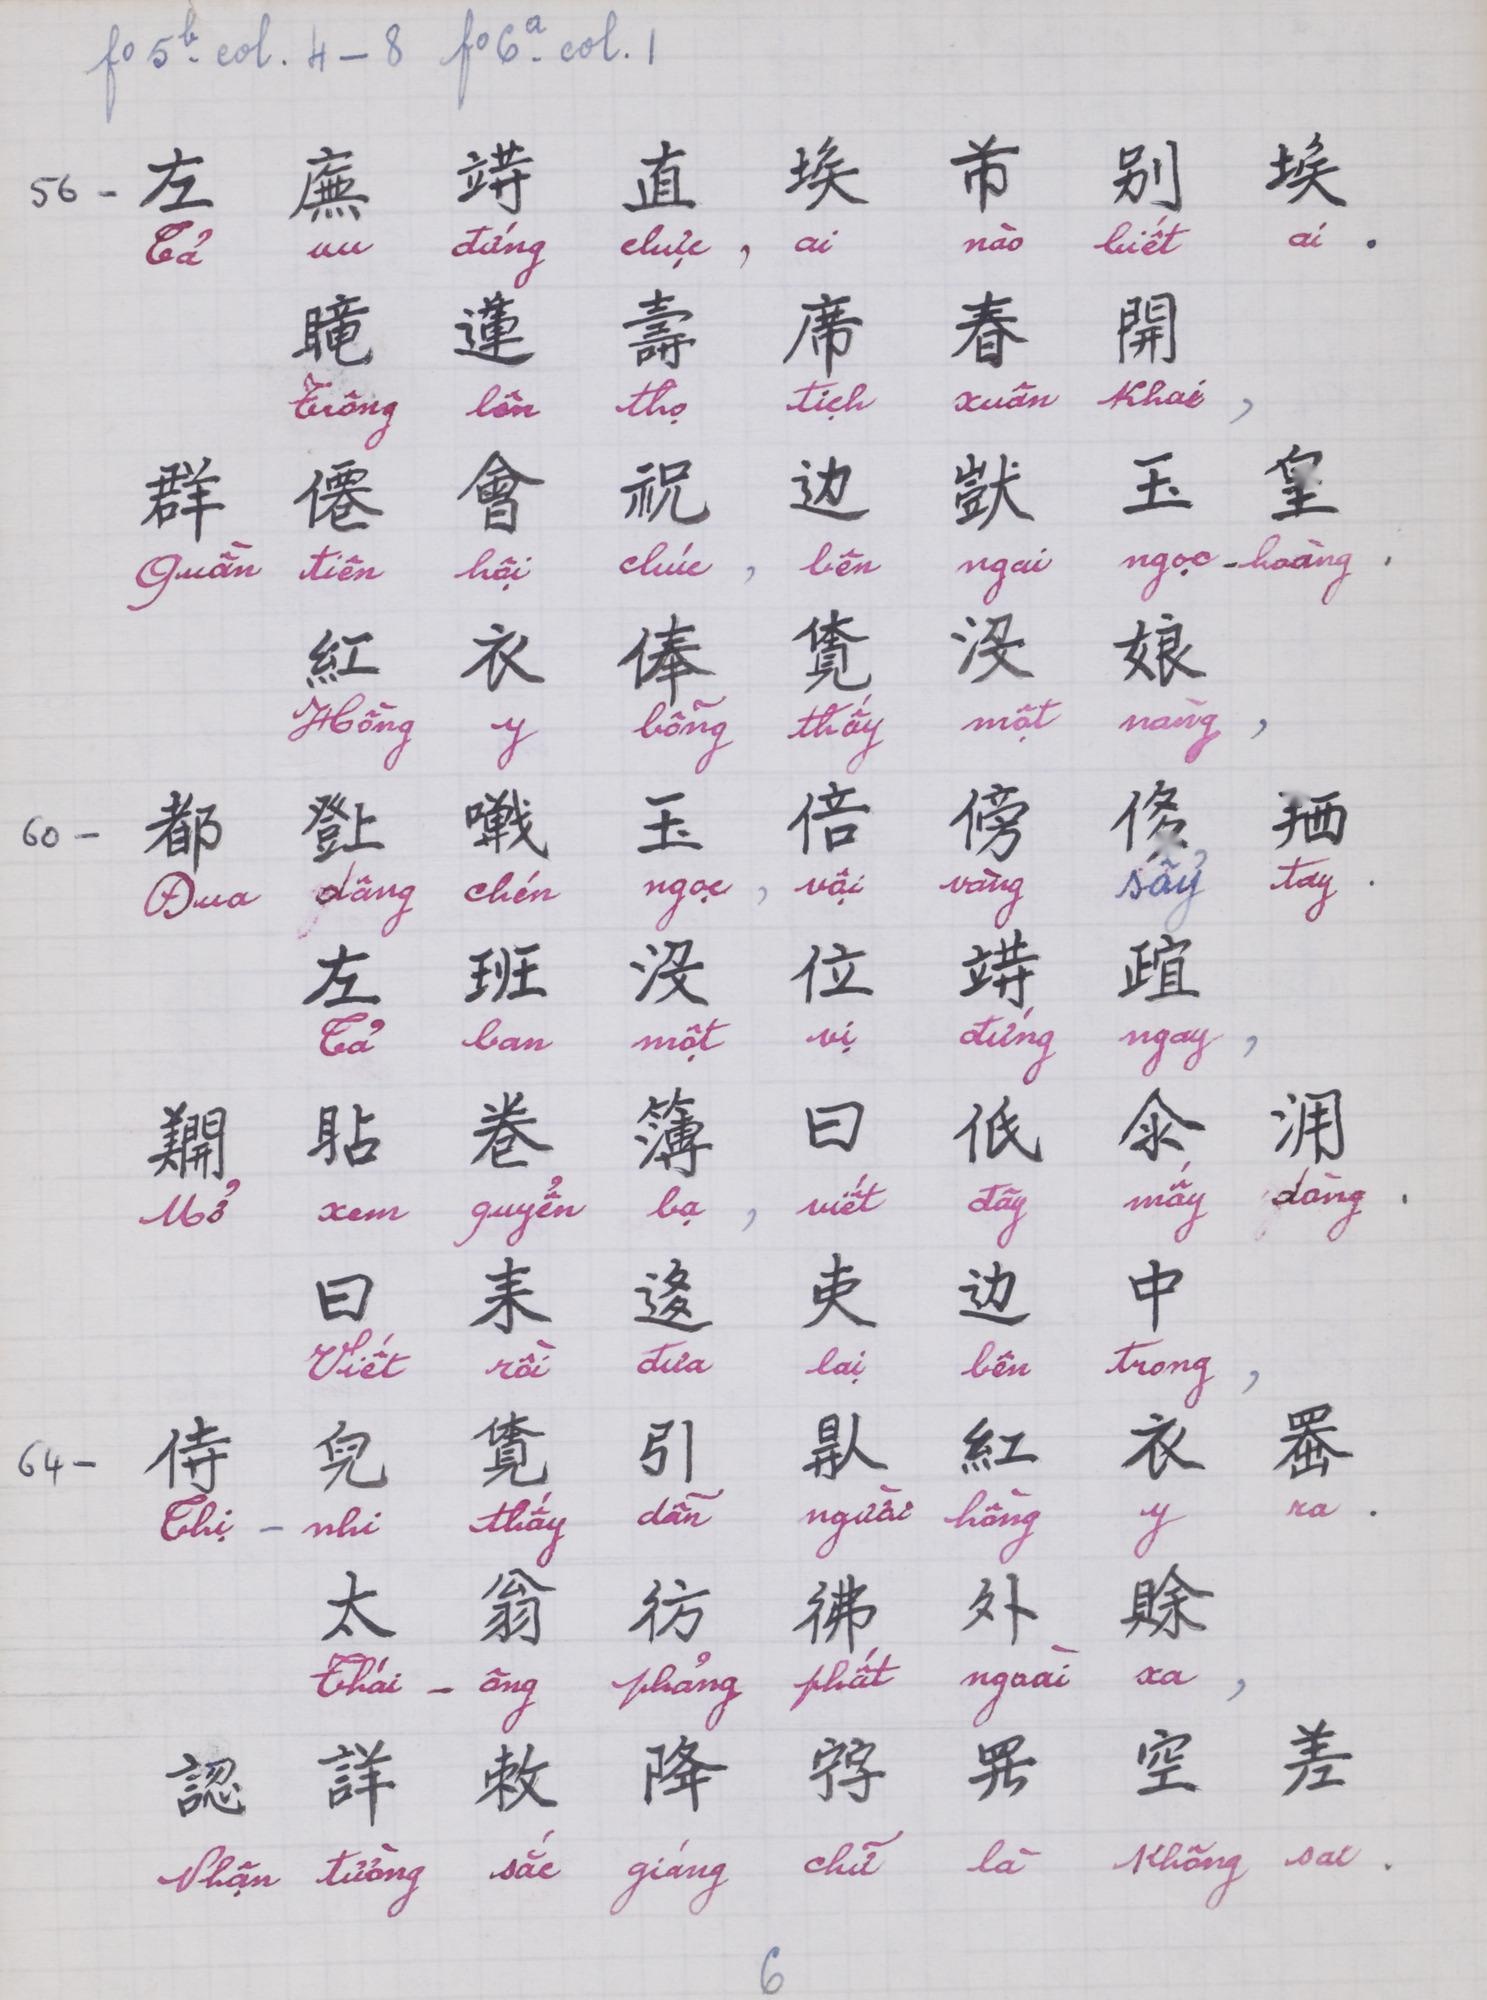 fo 5b. col. 4 – 8 fo 6a. col. 1
56 – 左 廡 𨅸 直 埃 芾 别 埃
Tả vu đứng chực, ai nào biết ai.
𥊚 蓮 壽 席 春 開
Trông lên thọ tịch xuân khai,
群 僊 會 祝 边 𤠲 玉 皇
Quần tiên hội chúc, bên ngai ngọc-hoàng.
紅 衣 俸 覓 没 娘
Hồng y bỗng thấy một nàng,
60 – 都 𤼸 𡃹 玉 倍 傍 拪
Đua dâng chén ngọc, vội vàng sẩy tay.
左 班 没 位 𨅸
Tả ban một vị đứng ngay,
貼 卷 簿 曰 低 氽 㳥
Mở xem quyển bạ, viết đây mấy dòng.
曰 耒 迻 吏 边 中
Viết rồi đưa lại bên trong,
64 – 侍 兒 覓 引 𠊛 紅 衣 𦋦
Thị – nhi thấy dẫn người hồng y ra.
太 翁 彷 彿 外 賖
Thái – ông phảng phất ngoài xa,
認 詳 敕 降 𡨸 𱺵 空 差
Nhận tường sắc giáng chữ là không sai.
6